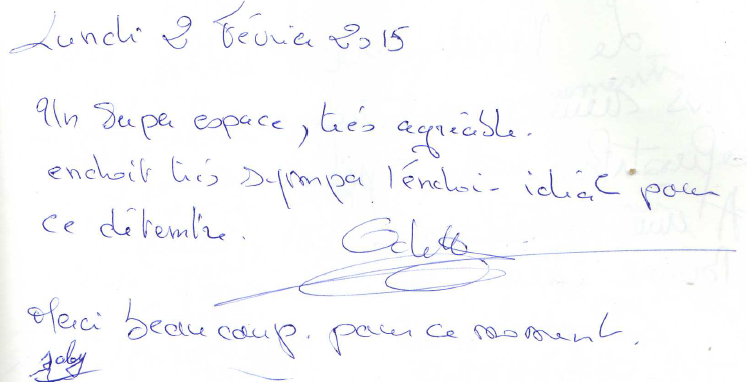 Lundi 2 Février 2015
Un Super espace, très agréable.
endroit très sympa l'endroit idéal pour
ce détentre.
Odette
Merci beaucoup. pour ce moment.